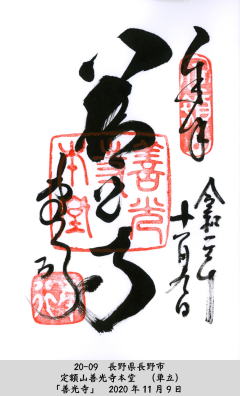 奉拝
善光寺
令和二年
十一月九日
善光寺本堂
20-09 長野県長野市
定額山善光寺本堂 (単立)
「善光寺」 2020年11月9日